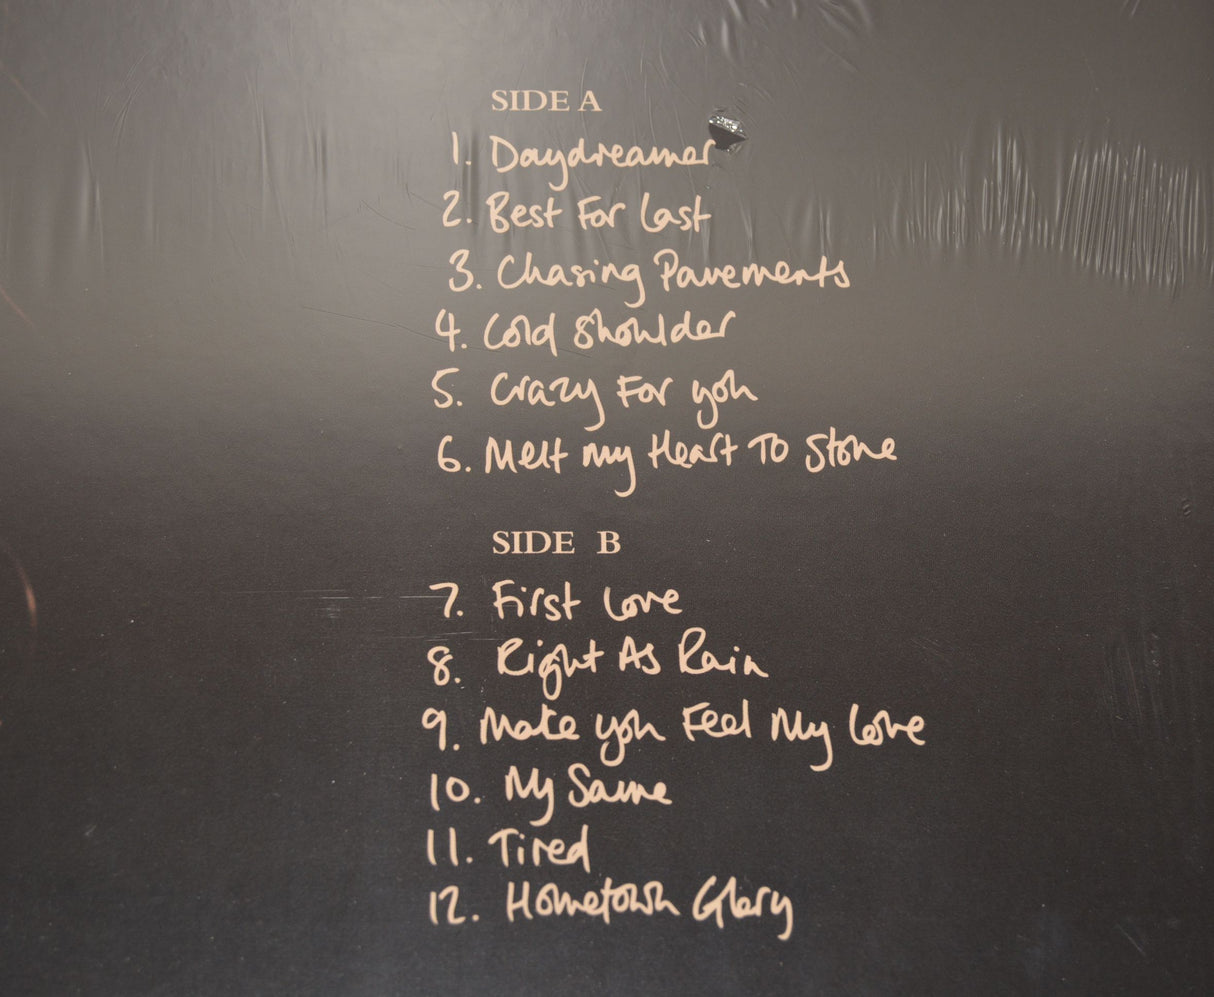 SIDE A
1. Daydreamer
2. Best For Last
3. Chasing Pavements
4. Cold Shoulder
5. Crazy For you
6. Melt my Heart To Stone
SIDE B
7. First Love
8. Right As Rain
9. Make you Feel My Love
10. My Same
11. Tired
12. Hometown Glory